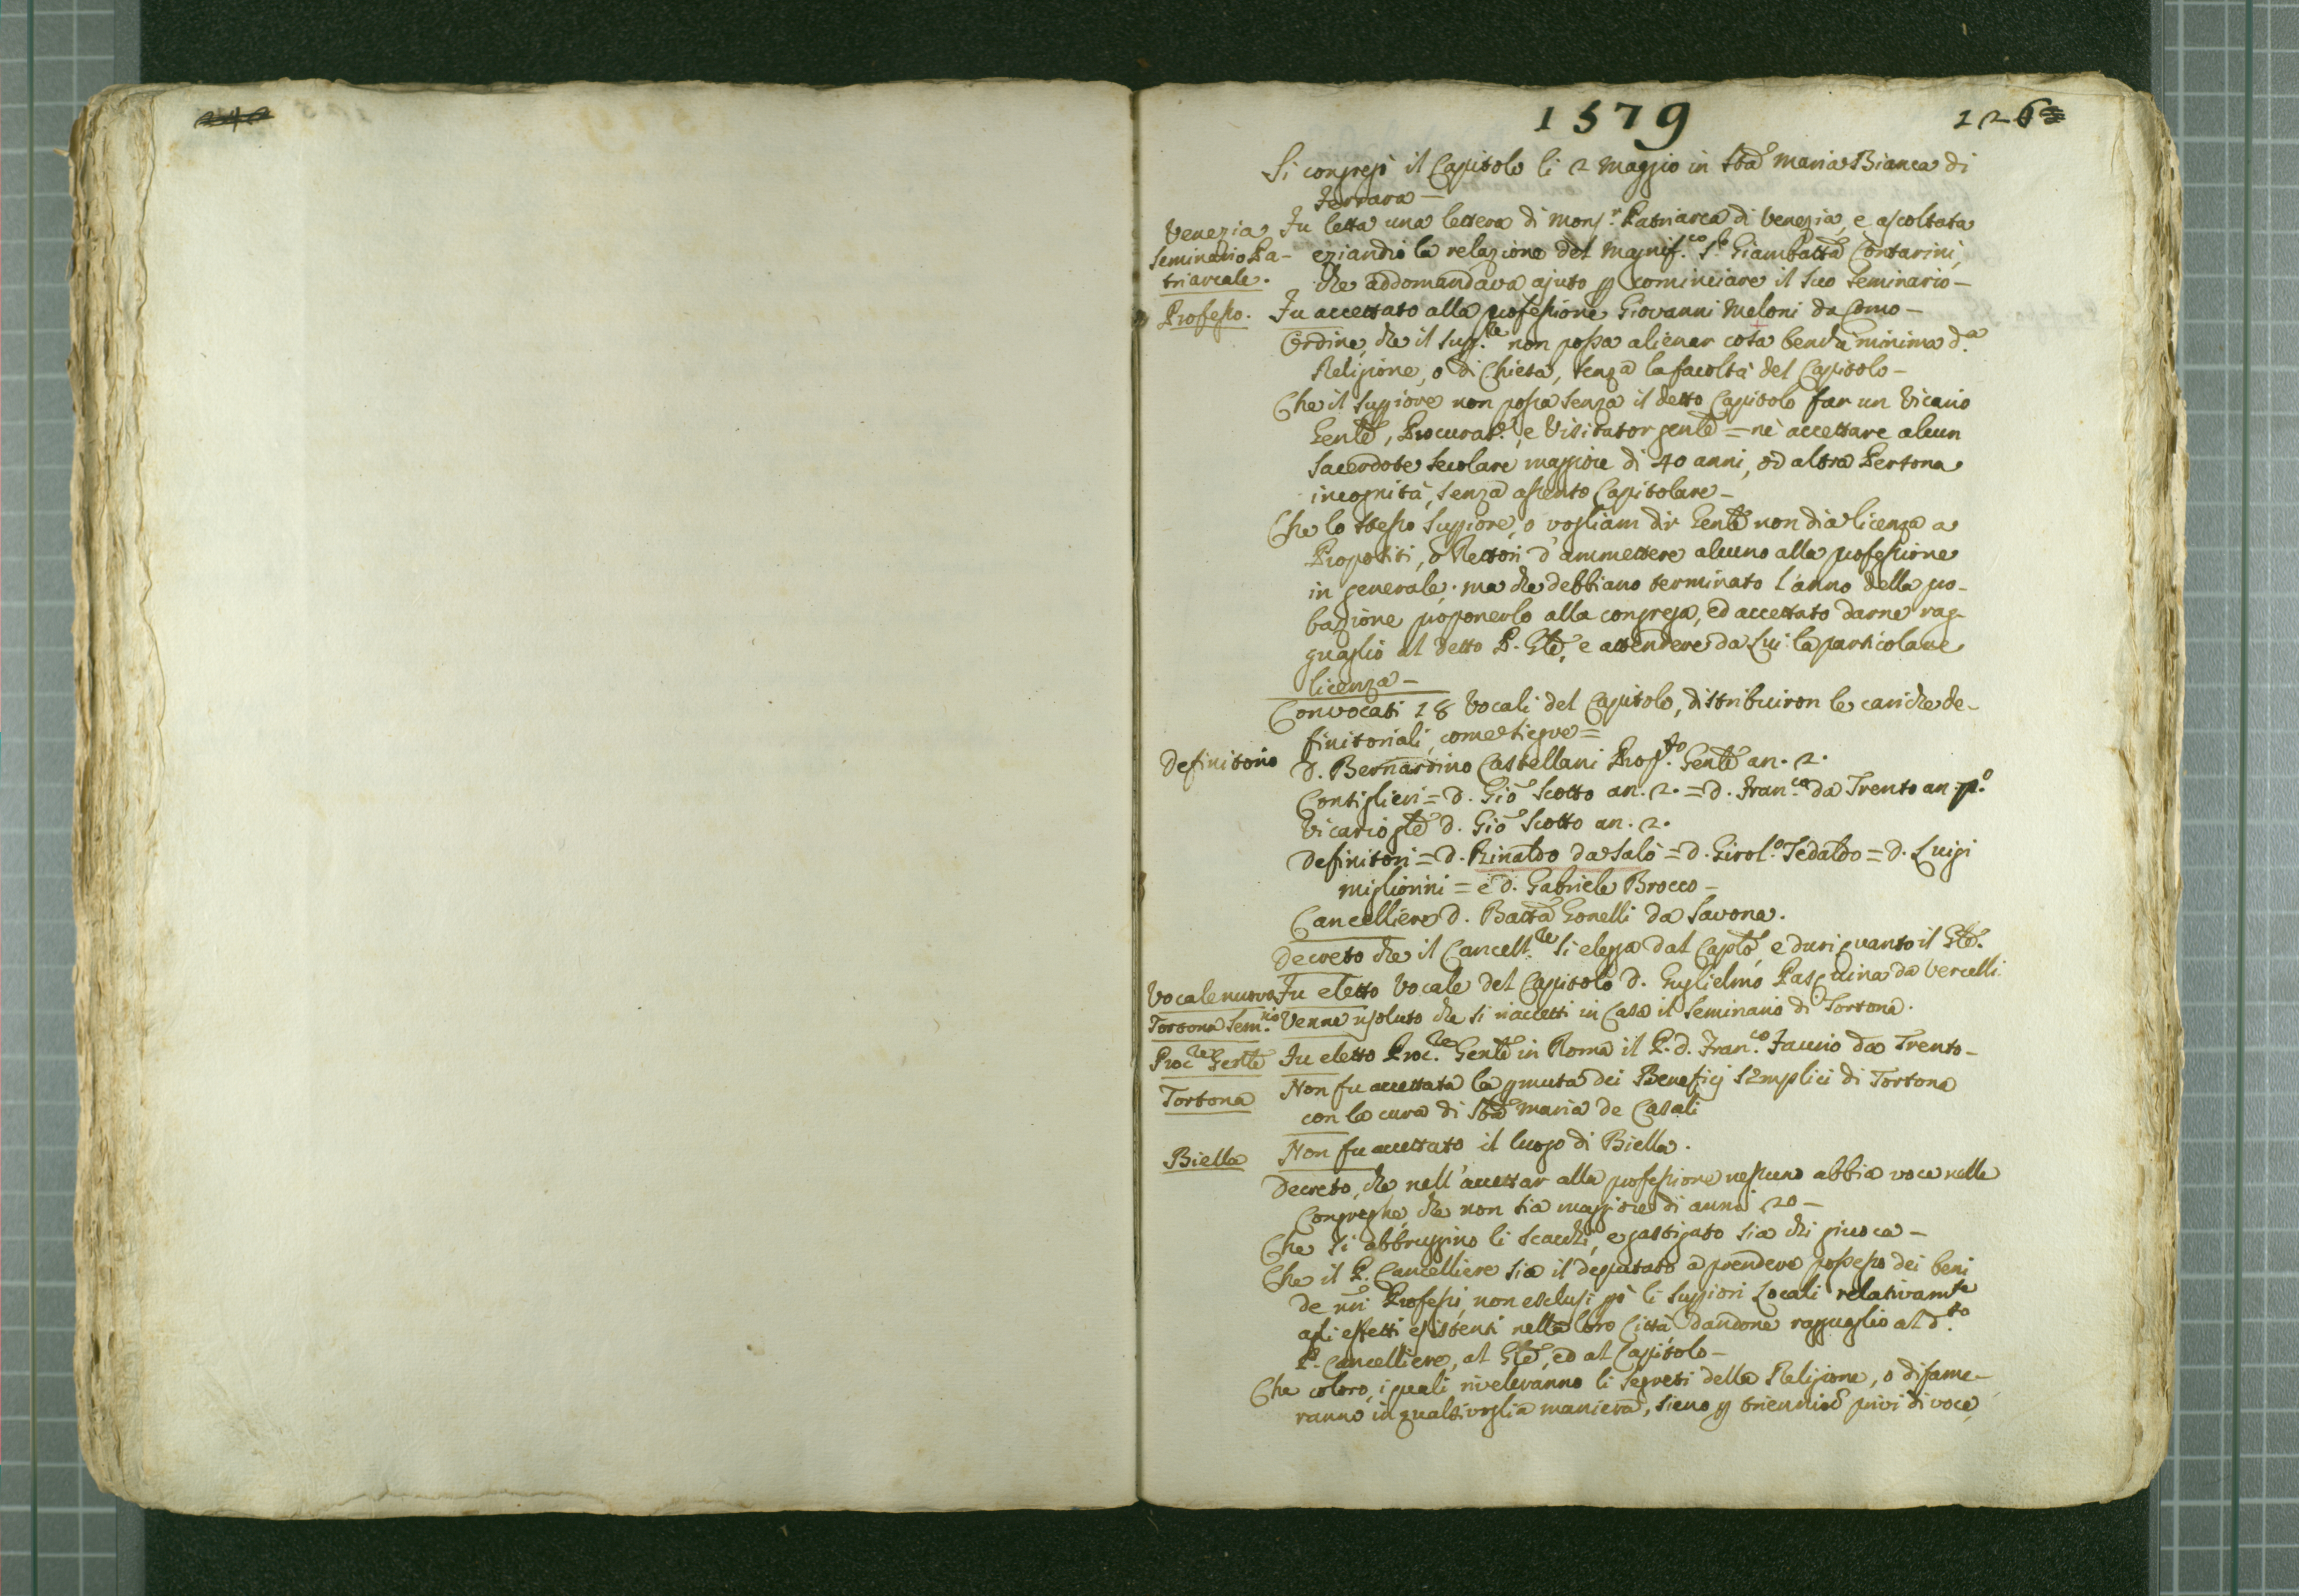 1579
126
Si congregò il Capitolo li 2 Maggio in Sta Maria Bianca di
Ferrara –
Venezia Seminario Pa-
triarcale.
Fu letta una lettera di Monsr. Patriarca di Venezia, e ascoltata
eziandio la relazione del Magnif.co Sr. Giambatta Contarini,
che addomandava ajuto p cominciare il suo Seminario –
Professo.
Fu accettato alla professione Giovanni Meloni da Como –
Ordine, che il Supre. non possa alienar cosa benchè minima da.
Religione, o di Chiesa, senza la facoltà del Capitolo –
Che il Suppiore non possa senza il detto Capitolo far un Vicario
Genle, Procurat.r, e Visitator genle = nè accettare alcun
Sacerdote secolare maggiore di 40 anni, od altra Persona
incognita, senza assenso Capitolare –
Che lo stesso Suppiore, o vogliam dir Genle non dia licenza a
Propositi, o Rettori d'ammettere alcuno alla professione
in generale; ma che debbiano terminato l'anno della pro-
bazione proponerlo alla congrega, ed accettato darne rag-
guaglio al detto P. Gle, e attendere da Lui la particolare
licenza –
Convocati 18 Vocali del Capitolo, distribuiron le cariche de-
finitoriali, come siegue =
Definitorio
D. Bernardino Castellani Prop.to Genle an. 2.
Consiglieri = D. Gio Scotto an. 2. = D. Fran.co da Trento an. po.
Vicario gle D. Gio Scotto an. 2.
Definitori = D. Rinaldo da Salò = D. Girol.o Tedaldo = D. Luigi
Migliorini = e D. Gabriele Brocco –
Cancelliere D. Batta Gonelli da Savona.
Decreto che il Cancell.re si elegga dal Caplo, e duri quanto il Gle.
Vocale nuovo
Fu eletto Vocale del Capitolo D. Guglielmo Pasquina da Vercelli
Tortona Sem.rio
Venne risoluto che si riaccetti in Casa il Seminario di Tortona.
Proc.re Genle
Fu eletto Proc.re Genle in Roma il P. D. Fran.co Faurio da Trento –
Tortona
Non fu accettata la pmuta dei Beneficj Semplici di Tortona
con la cura di Sta Maria de Casali
Biella
Non fu accettato il luogo di Biella.
Decreto, che nell'accettar alla professione nessuno abbia voce nelle
Congreghe, che non sia maggiore di anni 20 –
Che si abbruggino li scacchi, e gastigato sia chi giuoca –
Che il P. Cancelliere sia il deputato a prendere possesso dei beni
de nri Professi, non esclusi pò li Suppiori Locali relativamte
agli effetti esistenti nella loro Città dandone ragguaglio al d.to
P. Cancelliere, al Gle, ed al Capitolo –
Che coloro, i quali riveleranno li segreti della Religione, o disame-
ranno in qualsivoglia maniera, sieno p triennio privi di voce,